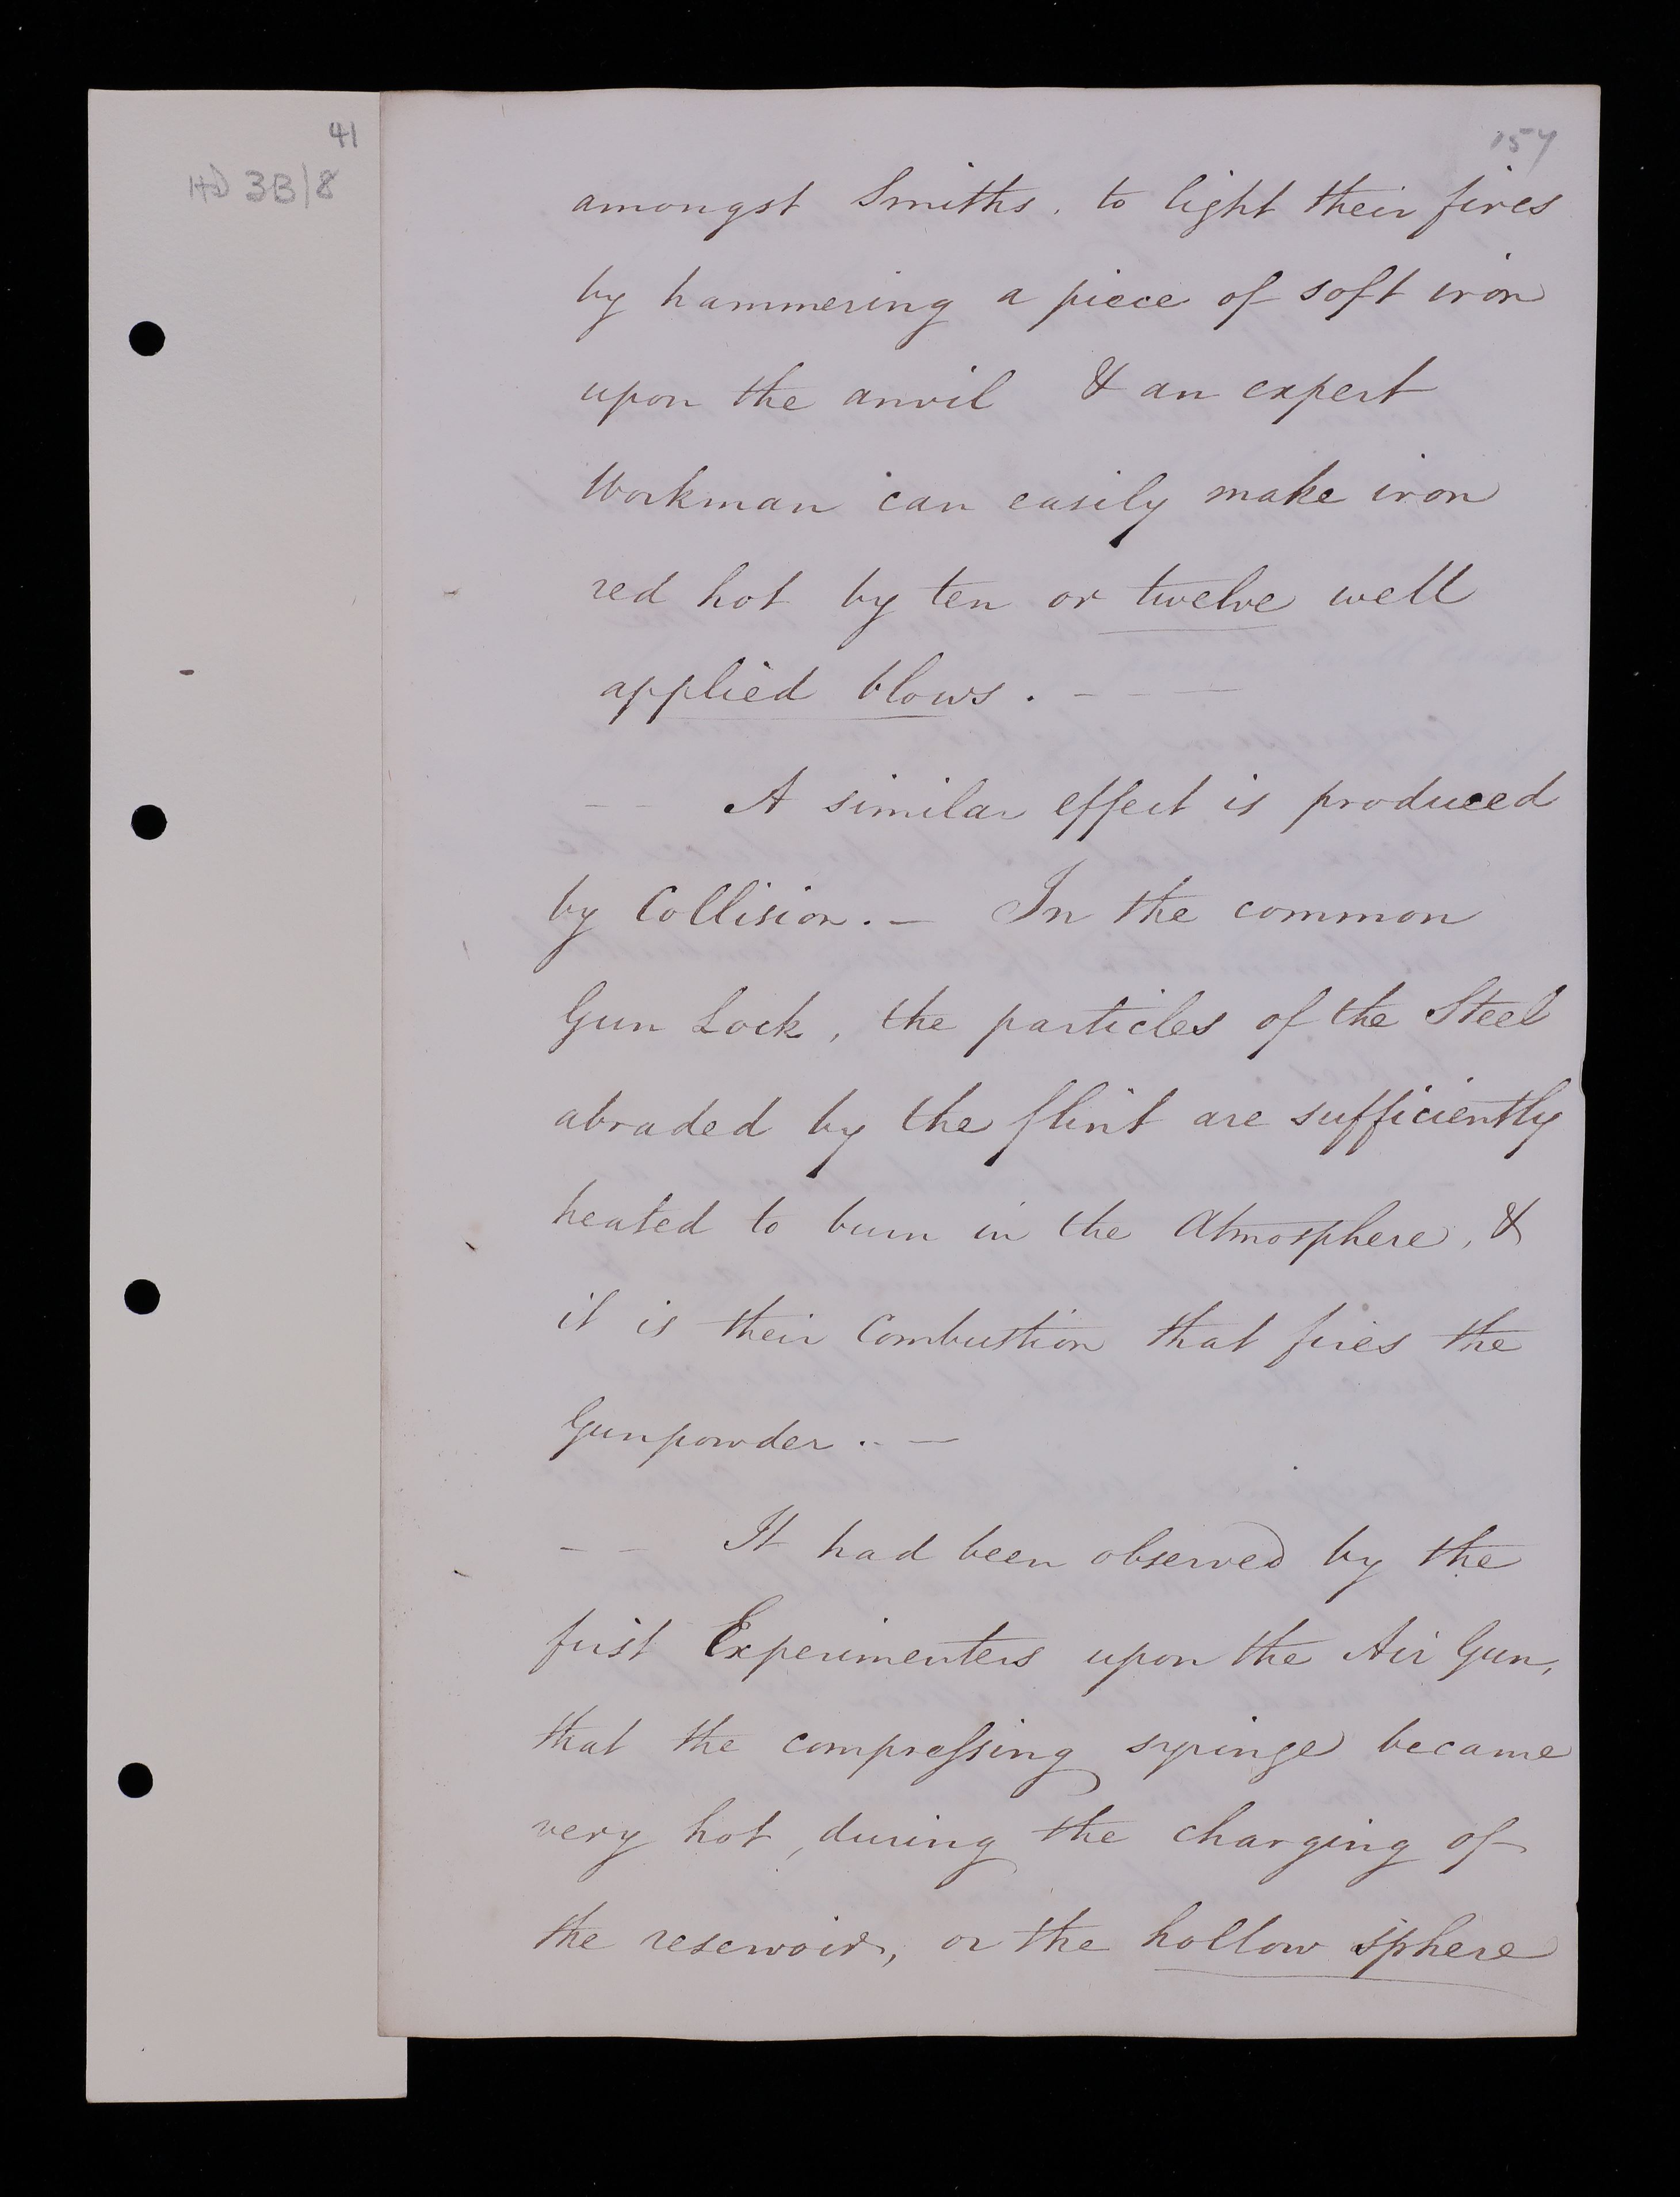 41
HD 3B/8
157
amongst Smiths, to light their fires
by hammering a piece of soft iron
upon the anvil & an expert
Workman can easily make iron
red hot by ten or twelve well
applied blows. - — —
- - A similar effect is produced
by Collision. — In the common
Gun Lock, the particles of the Steel
abraded by the flint are sufficiently
heated to burn in the Atmosphere, &
it is their Combustion that fires the
Gunpowder .. —
- - It had been observed by the
first Experimenters upon the Air Gun,
that the compreſsing syringe became
very hot, during the charging of
the reservoir, or the hollow sphere